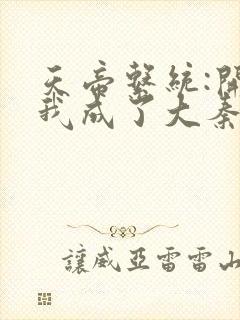 天帝系統:開
我成了大秦
讓威亞雷雷山